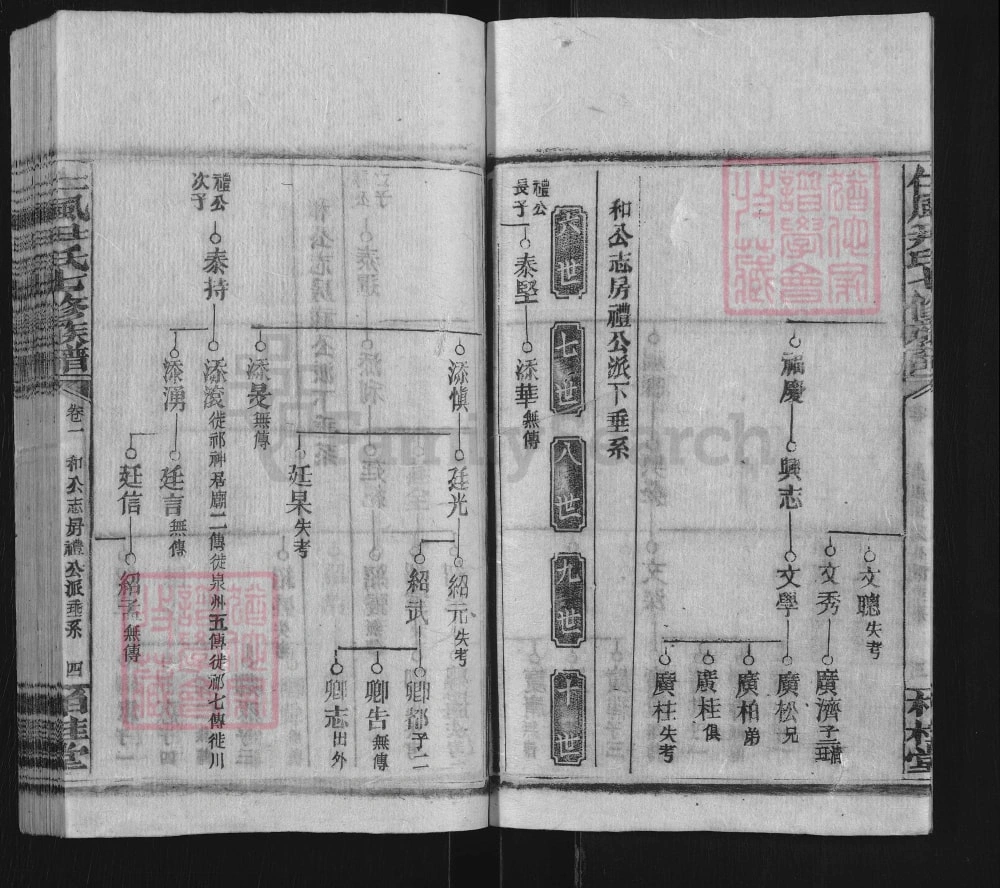 福慶
興志
文聰失考
文秀
文學
廣濟
廣松兄
廣柏弟
廣桂俱
廣柱失考
和公志房禮公派下垂系
六世
七世
八世
九世
十世
禮公
長子
泰堅
添華無傳
FamilySearch
添慎
廷光
紹元失考
紹武
卿都子二
卿告無傳
卿志出外
廷杲失考
無傳
禮公
次子
泰持
添滾徙祁神君廟二傳徙泉州五傳徙祁七傳徙川
添湧
廷言無傳
廷信
無傳
氏七修族譜
卷一
和公志房禮公派垂系
四
桂堂